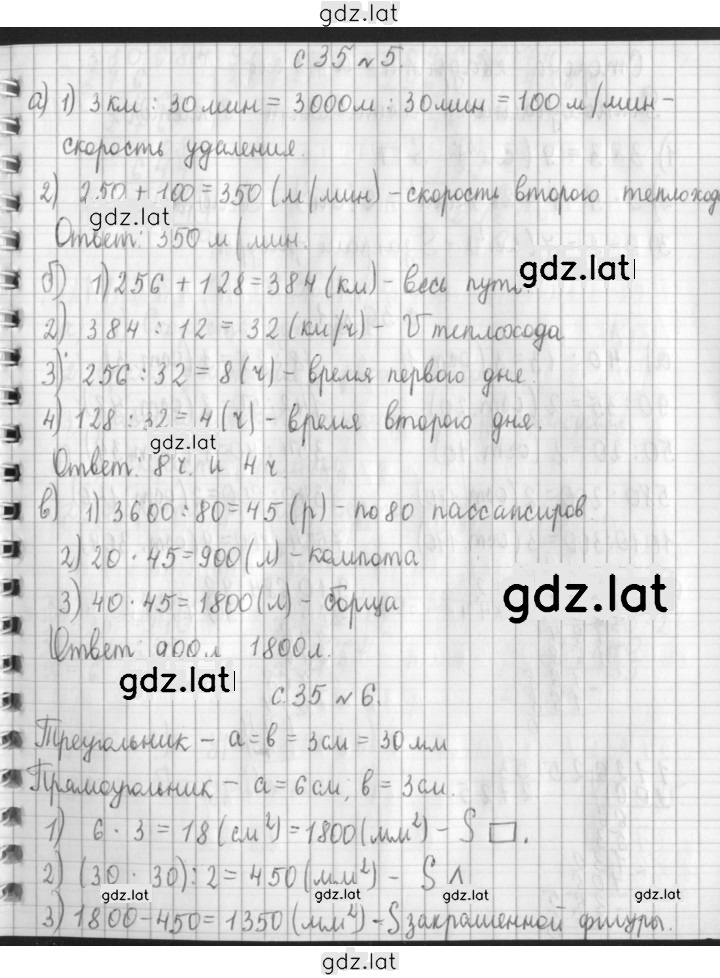 gdz.lat
с 35 № 5.
а) 1) 3 км : 30 мин = 3000 м : 30 мин = 100 м/мин -
скорость удаления.
2) 250 + 100 = 350 (м/мин) - скорость второго теплохода
gdz.lat
Ответ: 350 м/мин.
gdz.lat
б) 1) 256 + 128 = 384 (км) - весь путь.
2) 384 : 12 = 32 (км/ч) - V теплохода
3) 256 : 32 = 8 (ч) - время первого дня.
4) 128 : 32 = 4 (ч) - время второго дня.
gdz.lat
Ответ: 8 ч. и 4 ч
в) 1) 3600 : 80 = 45 (р) - по 80 пассансиров.
2) 20 · 45 = 900 (л) - компота
3) 40 · 45 = 1800 (л) - борща
gdz.lat
Ответ: 900 л 1800 л.
gdz.lat
с. 35 № 6.
Треугольник - a = в = 3 см = 30 мм
Прямоугольник - a = 6 см, в = 3 см.
1) 6 · 3 = 18 (см²) = 1800 (мм²) - S □.
2) (30 · 30) : 2 = 450 (мм²) - S Λ
gdz.lat gdz.lat gdz.lat
3) 1800 - 450 = 1350 (мм²) - S закрашенной фигуры.
gdz.lat